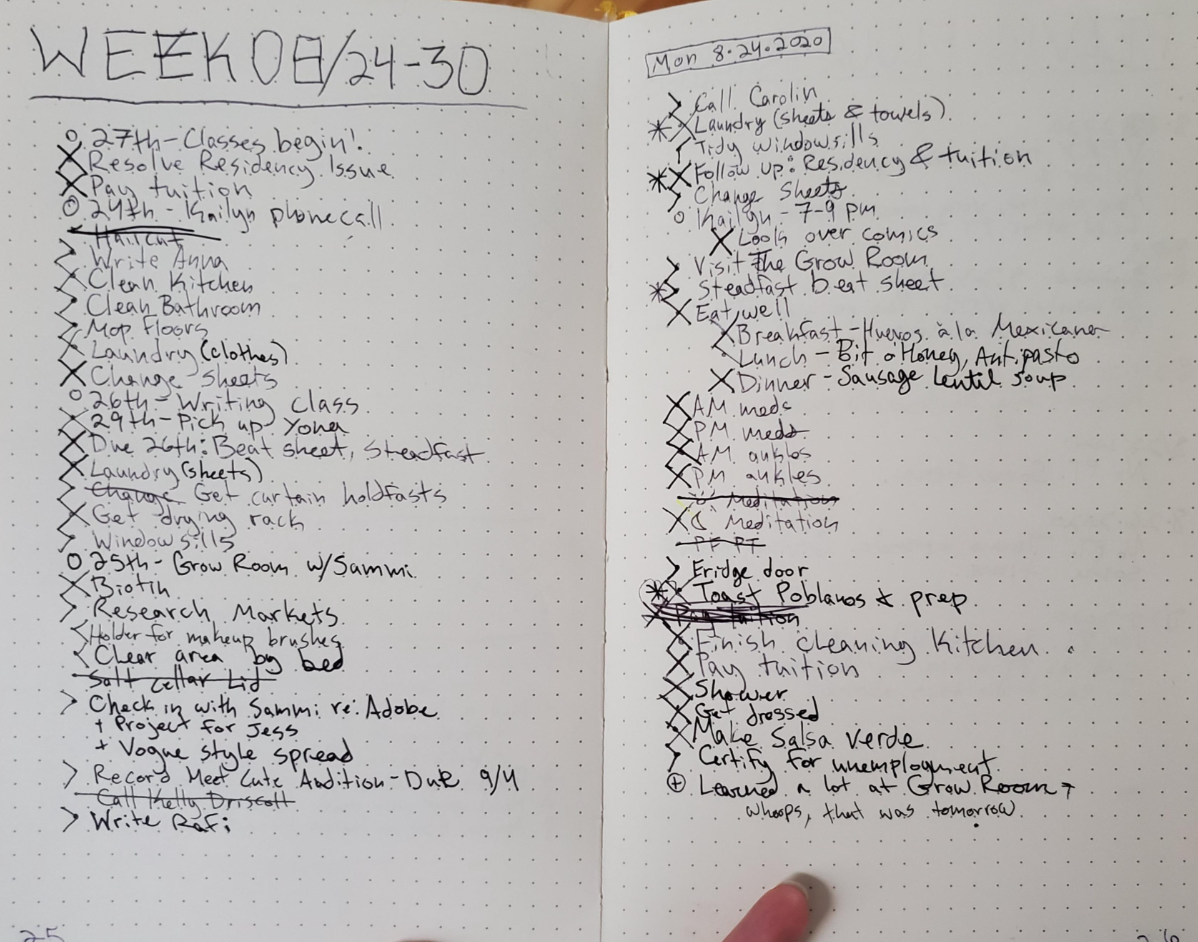 WEEK 08/24-30
O 27th - Classes begin!
X Resolve Residency Issue
X Pay tuition
O 24th - Kailyn phonecall
Haircut
> Write Anna
X Clean Kitchen
> Clean Bathroom
> Mop Floors
X Laundry (clothes)
X Change sheets
O 26th - Writing class
X 29th - Pick up Yona
X Due 26th: Beat sheet, Steadfast
X Laundry (sheets)
> Change Get curtain holdfasts
X Get drying rack
> Windowsills
O 25th - Grow Room w/Sammi
X Biotin
> Research Markets
< Holder for makeup brushes
< Clear area by bed
Salt Cellar Lid
> Check in with Sammi re: Adobe
+ Project for Jess
+ Vogue style spread
> Record Meet Cute Audition - Due 9/4
Call Kelly Driscoll
> Write Rafi
25
Mon 8.24.2020
> Call Carolin
* X Laundry (sheets & towels)
> Tidy windowsills
* X Follow up: Residency & tuition
> Change Sheets
O Kailyn - 7-9 pm
X Look over comics
> Visit The Grow Room
* > Steadfast beat sheet
X Eat well
X Breakfast - Huevos à la Mexicana
· Lunch - Bit o Honey, Antipasto
X Dinner - Sausage lentil soup
X AM meds
X PM meds
X AM ankles
X PM ankles
Meditation
X ☾ Meditation
PF PT
> Fridge door
* X Toast Poblanos & prep
X Pay tuition
X Finish cleaning Kitchen
X Pay tuition
X Shower
X Get dressed
X Make Salsa verde
> Certify for unemployment
⊕ Learned a lot at Grow Room →
whoops, that was tomorrow.
26